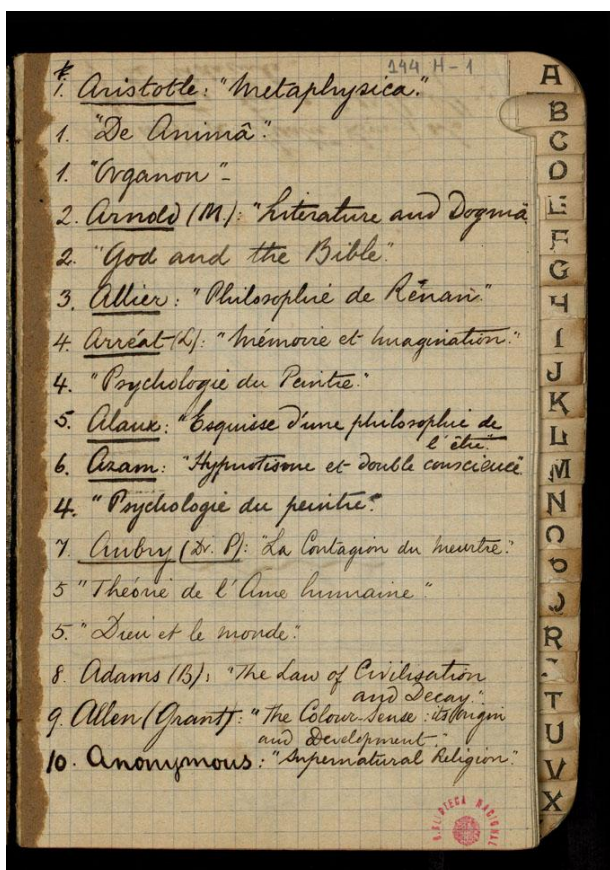 144 H-1
1. Aristotle: "Metaphysica."
1. "De Animâ".
1. "Organon"-
2. Arnold (M.): "Literature and Dogma
2. "God and the Bible".
3. Allier: "Philosophie de Rénan."
4. Arréat (L): "Mémoire et Imagination."
4. "Psychologie du Peintre."
5. Alaux: "Esquisse d'une philosophie de
l'être.
6. Azam: "Hypnotisme et double conscience".
4. "Psychologie du peintre."
7. Aubry (Dr. P): "La Contagion du meurtre."
5 "Théorie de l'Ame humaine".
5. "Dieu et le monde".
8. Adams (B): "The Law of Civilisation
and Decay."
9. Allen (Grant): "The Colour-Sense: its Origin
and Development"
10. Anonymous: "Supernatural Religion".
BIBLIOTECA NACIONAL
A
B
C
D
E
F
G
H
I
J
K
L
M
N
O
P
R
T
U
V
X